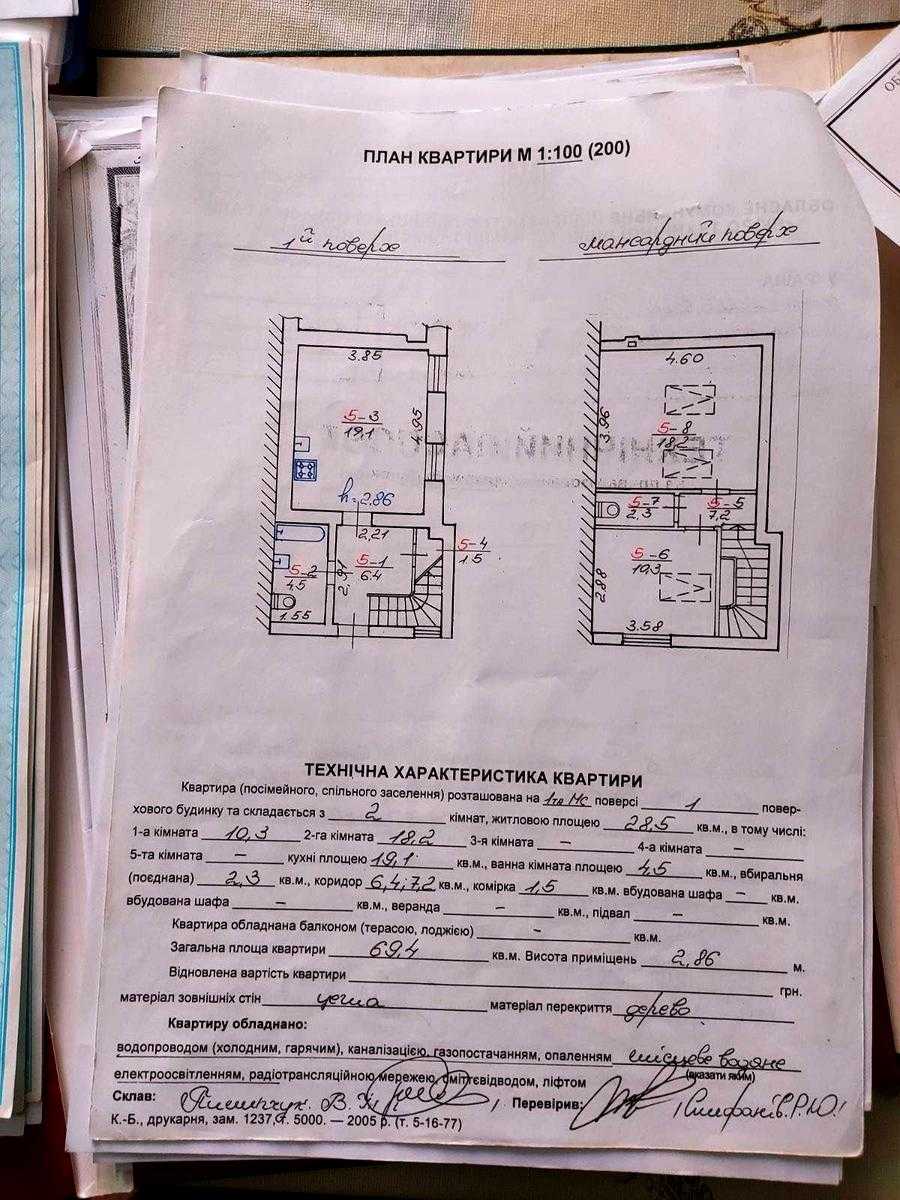 ПЛАН КВАРТИРИ М 1:100 (200)
1й поверх
мансардний поверх
3.85
5-3
19,1
4.95
h=2.86
2,21
5-4
1.5
5-1
6.4
2,91
5-2
4.5
1.55
4.60
3.96
5-8
18,2
5-7
2.3
5-5
7,2
5-6
10,3
2.88
3.58
ТЕХНІЧНА ХАРАКТЕРИСТИКА КВАРТИРИ
Квартира (посімейного, спільного заселення) розташована на 1та МС поверсі 1 повер-
хового будинку та складається з 2 кімнат, житловою площею 28,5 кв.м., в тому числі:
1-а кімната 10,3 2-га кімната 18,2 3-я кімната – 4-а кімната –
5-та кімната – кухні площею 19,1 кв.м., ванна кімната площею 4,5 кв.м., вбиральня
(поєднана) 2,3 кв.м., коридор 6,4; 7,2 кв.м., комірка 1,5 кв.м. вбудована шафа – кв.м.
вбудована шафа – кв.м., веранда – кв.м., підвал – кв.м.
Квартира обладнана балконом (терасою, лоджією) – кв.м.
Загальна площа квартири 69,4 кв.м. Висота приміщень 2,86 м.
Відновлена вартість квартири грн.
матеріал зовнішніх стін цегла матеріал перекриття дерево
Квартиру обладнано:
водопроводом (холодним, гарячим), каналізацією, газопостачанням, опаленням місцеве водяне
(вказати яким)
електроосвітленням, радіотрансляційною мережею, сміттєвідводом, ліфтом
Склав: Перевірив:
К.-Б., друкарня, зам. 1237, т. 5000. — 2005 р. (т. 5-16-77)